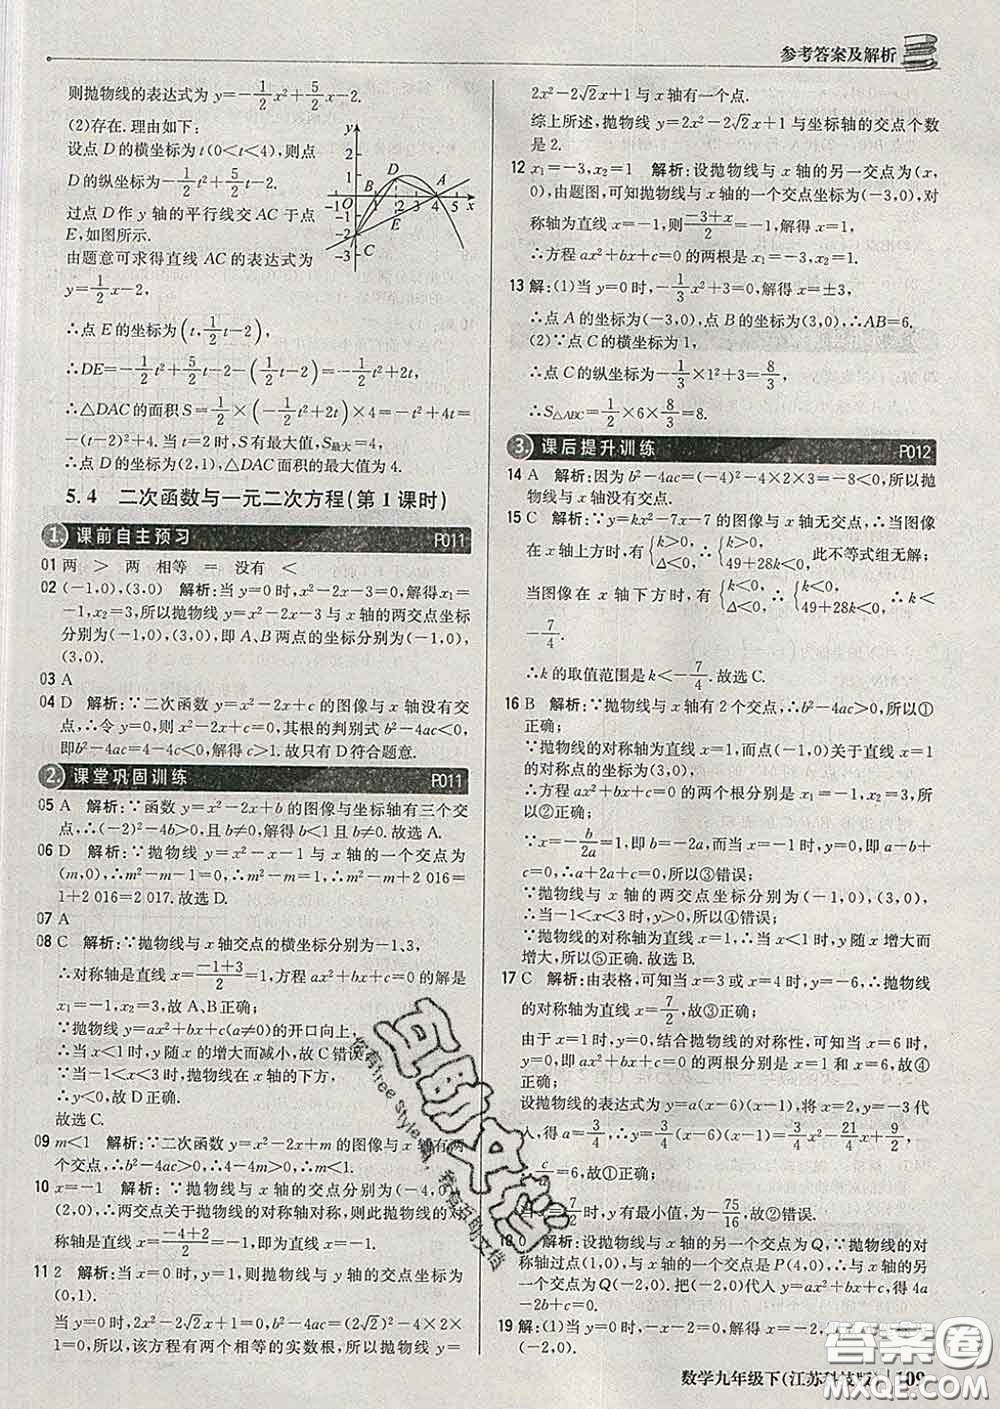 参考答案及解析
则抛物线的表达式为 y=-1/2x²+5/2x-2.
(2)存在. 理由如下:
设点 D 的横坐标为 t(0<t<4),则点
D 的纵坐标为-1/2t²+5/2t-2.
过点 D 作 y 轴的平行线交 AC 于点
E,如图所示.
由题意可求得直线 AC 的表达式为
y=1/2x-2.
∴点 E 的坐标为(t,1/2t-2),
∴DE=-1/2t²+5/2t-2-(1/2t-2)=-1/2t²+2t,
∴△DAC 的面积 S=1/2×(-1/2t²+2t)×4=-t²+4t=
-(t-2)²+4. 当 t=2 时,S 有最大值,S最大=4,
∴△DAC 面积的最大值为 4.
y
2
1
D
B
A
O
1 2 3 4 5 x
E
-1
-2
C
-3
5.4 二次函数与一元二次方程(第 1 课时)
1. 课前自主预习 P011
01 两 > 两 相等 = 没有 <
02 (-1,0),(3,0) 解析:当 y=0 时,x²-2x-3=0,解得x₁=
-1,x₂=3,所以抛物线 y=x²-2x-3 与 x 轴的两交点坐标
分别为(-1,0),(3,0),即 A、B 两点的坐标分别为(-1,0),
(3,0).
03 A
04 D 解析:∵二次函数 y=x²-2x+c 的图像与 x 轴没有交
点,∴令 y=0,则 x²-2x+c=0,其根的判别式 b²-4ac<0,
即b²-4ac=4-4c<0,解得 c>1. 故只有 D 符合题意.
2. 课堂巩固训练 P011
05 A 解析:∵函数 y=x²-2x+b 的图像与坐标轴有三个交
点,∴(-2)²-4b>0,且 b≠0,解得 b<1 且 b≠0. 故选 A.
06 D 解析:∵抛物线 y=x²-x-1 与 x 轴的一个交点为
(m,0),∴m²-m-1=0,∴m²-m=1,∴m²-m+2 016=
1+2 016=2 017. 故选 D.
07 A
08 C 解析:∵抛物线与 x 轴交点的横坐标分别为-1、3,
∴对称轴是直线 x=(-1+3)/2=1,方程 ax²+bx+c=0 的解是
x₁=-1,x₂=3,故 A、B 正确;
∵抛物线 y=ax²+bx+c(a≠0)的开口向上,
∴当 x<1 时,y 随 x 的增大而减小,故 C 错误
∵当-1<x<3 时,抛物线在 x 轴的下方,
∴y<0,故 D 正确.
故选 C.
09 m<1 解析:∵二次函数 y=x²-2x+m 的图像与 x 轴有两
个交点,∴b²-4ac>0,∴4-4m>0,∴m<1.
10 x=-1 解析:∵抛物线与 x 轴的交点分别为(-4,0),
(2,0),∴两交点关于抛物线的对称轴对称,则此抛物线的对
称轴是直线 x=(-4+2)/2=-1,即 x=-1.
11 2 解析:当 x=0 时,y=1,则与 y 轴的交点坐标为
(0,1).
当 y=0 时,2x²-2√2x+1=0,b²-4ac=(2√2)²-4×2×
1=0,所以,该方程有两个相等的实数根,所以抛物线 y=
2x²-2√2x+1 与 x 轴有一个点.
综上所述,抛物线 y=2x²-2√2x+1 与坐标轴的交点个数
是 2.
12 x₁=-3,x₂=1 解析:设抛物线与 x 轴的另一交点为(x,
0),由题图,可知抛物线与 x 轴的一个交点坐标为(-3,0),对
称轴为直线 x=-1,则(-3+x)/2=-1,解得 x=1,
∴方程 ax²+bx+c=0 的两根是 x₁=-3,x₂=1.
13 解:(1)当 y=0 时,-1/3x²+3=0,解得 x=±3,
∴点 A 的坐标为(-3,0),点 B 的坐标为(3,0),∴AB=6.
(2)∵点 C 的横坐标为 1,
∴点 C 的纵坐标为-1/3×1²+3=8/3,
∴S△ABC=1/2×6×8/3=8.
3. 课后提升训练 P012
14 A 解析:因为 b²-4ac=(-4)²-4×1×5=-4<0,所以抛
物线与 x 轴没有交点.
15 C 解析:∵抛物线 y=kx²-7x-7 的图像与 x 轴无交点,∴当图像
在 x 轴上方时,有{k>0, Δ<0,∴{k>0, 49+28k<0,此不等式组无解;
当图像在 x 轴下方时,有{k<0, Δ<0,∴{k<0, 49+28k<0,∴k<
-7/4.
∴k 的取值范围是 k<-7/4. 故选 C.
16 B 解析:∵抛物线与 x 轴有 2 个交点,∴b²-4ac>0,所以①
正确;
∵抛物线的对称轴为直线 x=1,而点(-1,0)关于直线
x=1 的对称点的坐标为(3,0),
∴方程 ax²+bx+c=0 的两个根分别是 x₁=-1,x₂=3,
所以②正确;
∵x=-b/2a=1,∴b=-2a,而当 x=-1 时,y=0,即 a-b+
c=0,∴a+2a+c=0,所以③错误;
∵抛物线与 x 轴的两交点坐标分别为(-1,0),(3,0),
∴当-1<x<3 时,y>0,所以④错误;
∵抛物线的对称轴为直线 x=1,∴当 x<1 时,y 随 x 增大
而增大,所以⑤正确. 故选 B.
17 C 解析:由表格,可知当 x=3 或 x=4 时,y=-6,∴抛物线
的对称轴为直线 x=7/2,故③正确;
由于 x=1 时,y=0,结合抛物线的对称性,可知当 x=6 时,
y=0,∴方程 ax²+bx+c=0 的两个根分别是 x=1 和 x=6,故
④正确;
设抛物线的表达式为 y=a(x-1)(x-6),将 x=3,y=-6 代
入,得 a=3/4x²-21/4x+9/2,
=6,故①正确;
7/2 时,y 有最小值,最小值为-75/16,故②错误. 故选 C.
18 0 解析:设抛物线与 x 轴的另一个交点为 Q,∵抛物线的
对称轴过点(1,0),与 x 轴的一个交点是 P(4,0),∴与 x 轴的另
一个交点为 Q(-2,0). 把(-2,0)代入 y=ax²+bx+c,得 4a
-2b+c=0.
19 解:(1)当 x=0 时,y=
(-2,0).
数学九年级下(江苏科技版) 109
答案圈
MXQE.COM